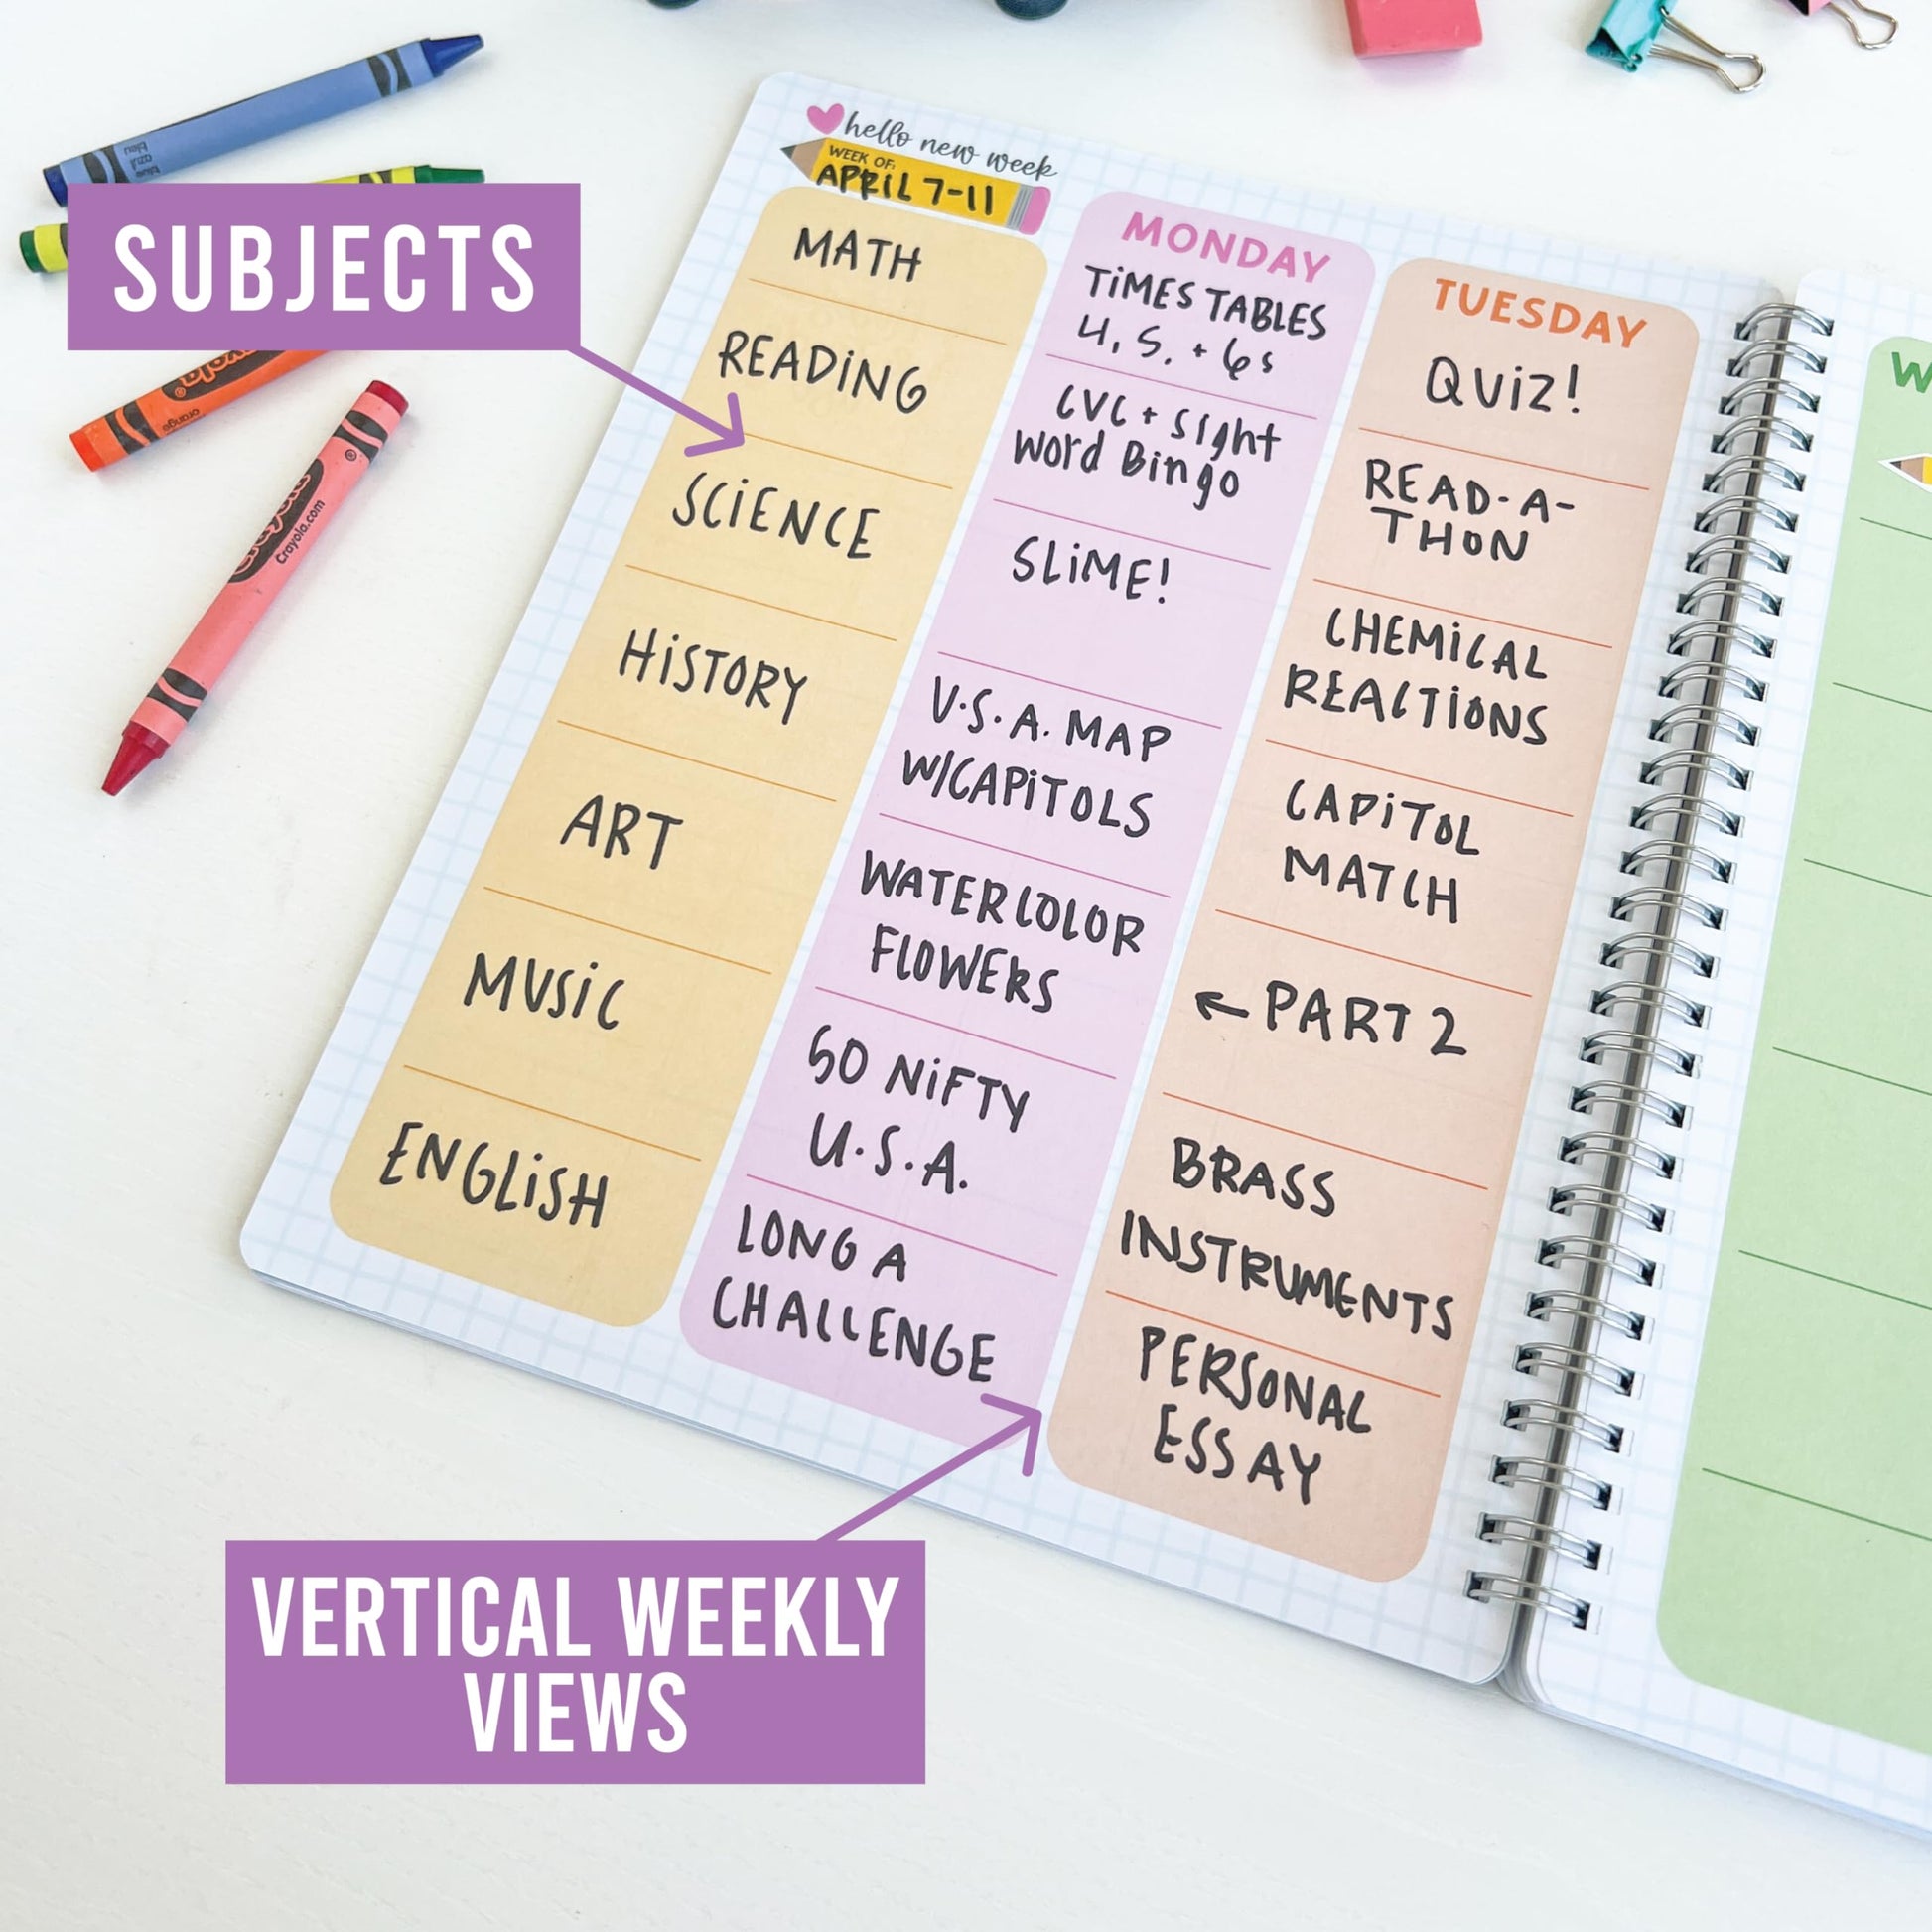 hello new week
WEEK OF:
APRiL 7-11
SUBJECTS
MATH
READiNG
SCiENCE
HiSTORY
ART
MUSiC
ENGLiSH
MONDAY
TiMES TABLES
4, 5, + 6s
CVC + Sight
Word Bingo
SLiME!
U.S.A. MAP
W/CAPiTOLS
WATERCOLOR
FLOWERS
50 NiFTY
U.S.A.
LONG A
CHALLENGE
TUESDAY
QUiZ!
READ-A-
THON
CHEMiCAL
REACTiONS
CAPiTOL
MATCH
← PART 2
BRASS
INSTRUMENTS
PERSONAL
ESSAY
W
VERTICAL WEEKLY
VIEWS
blue
azul
bleu
orange
Crayola.com